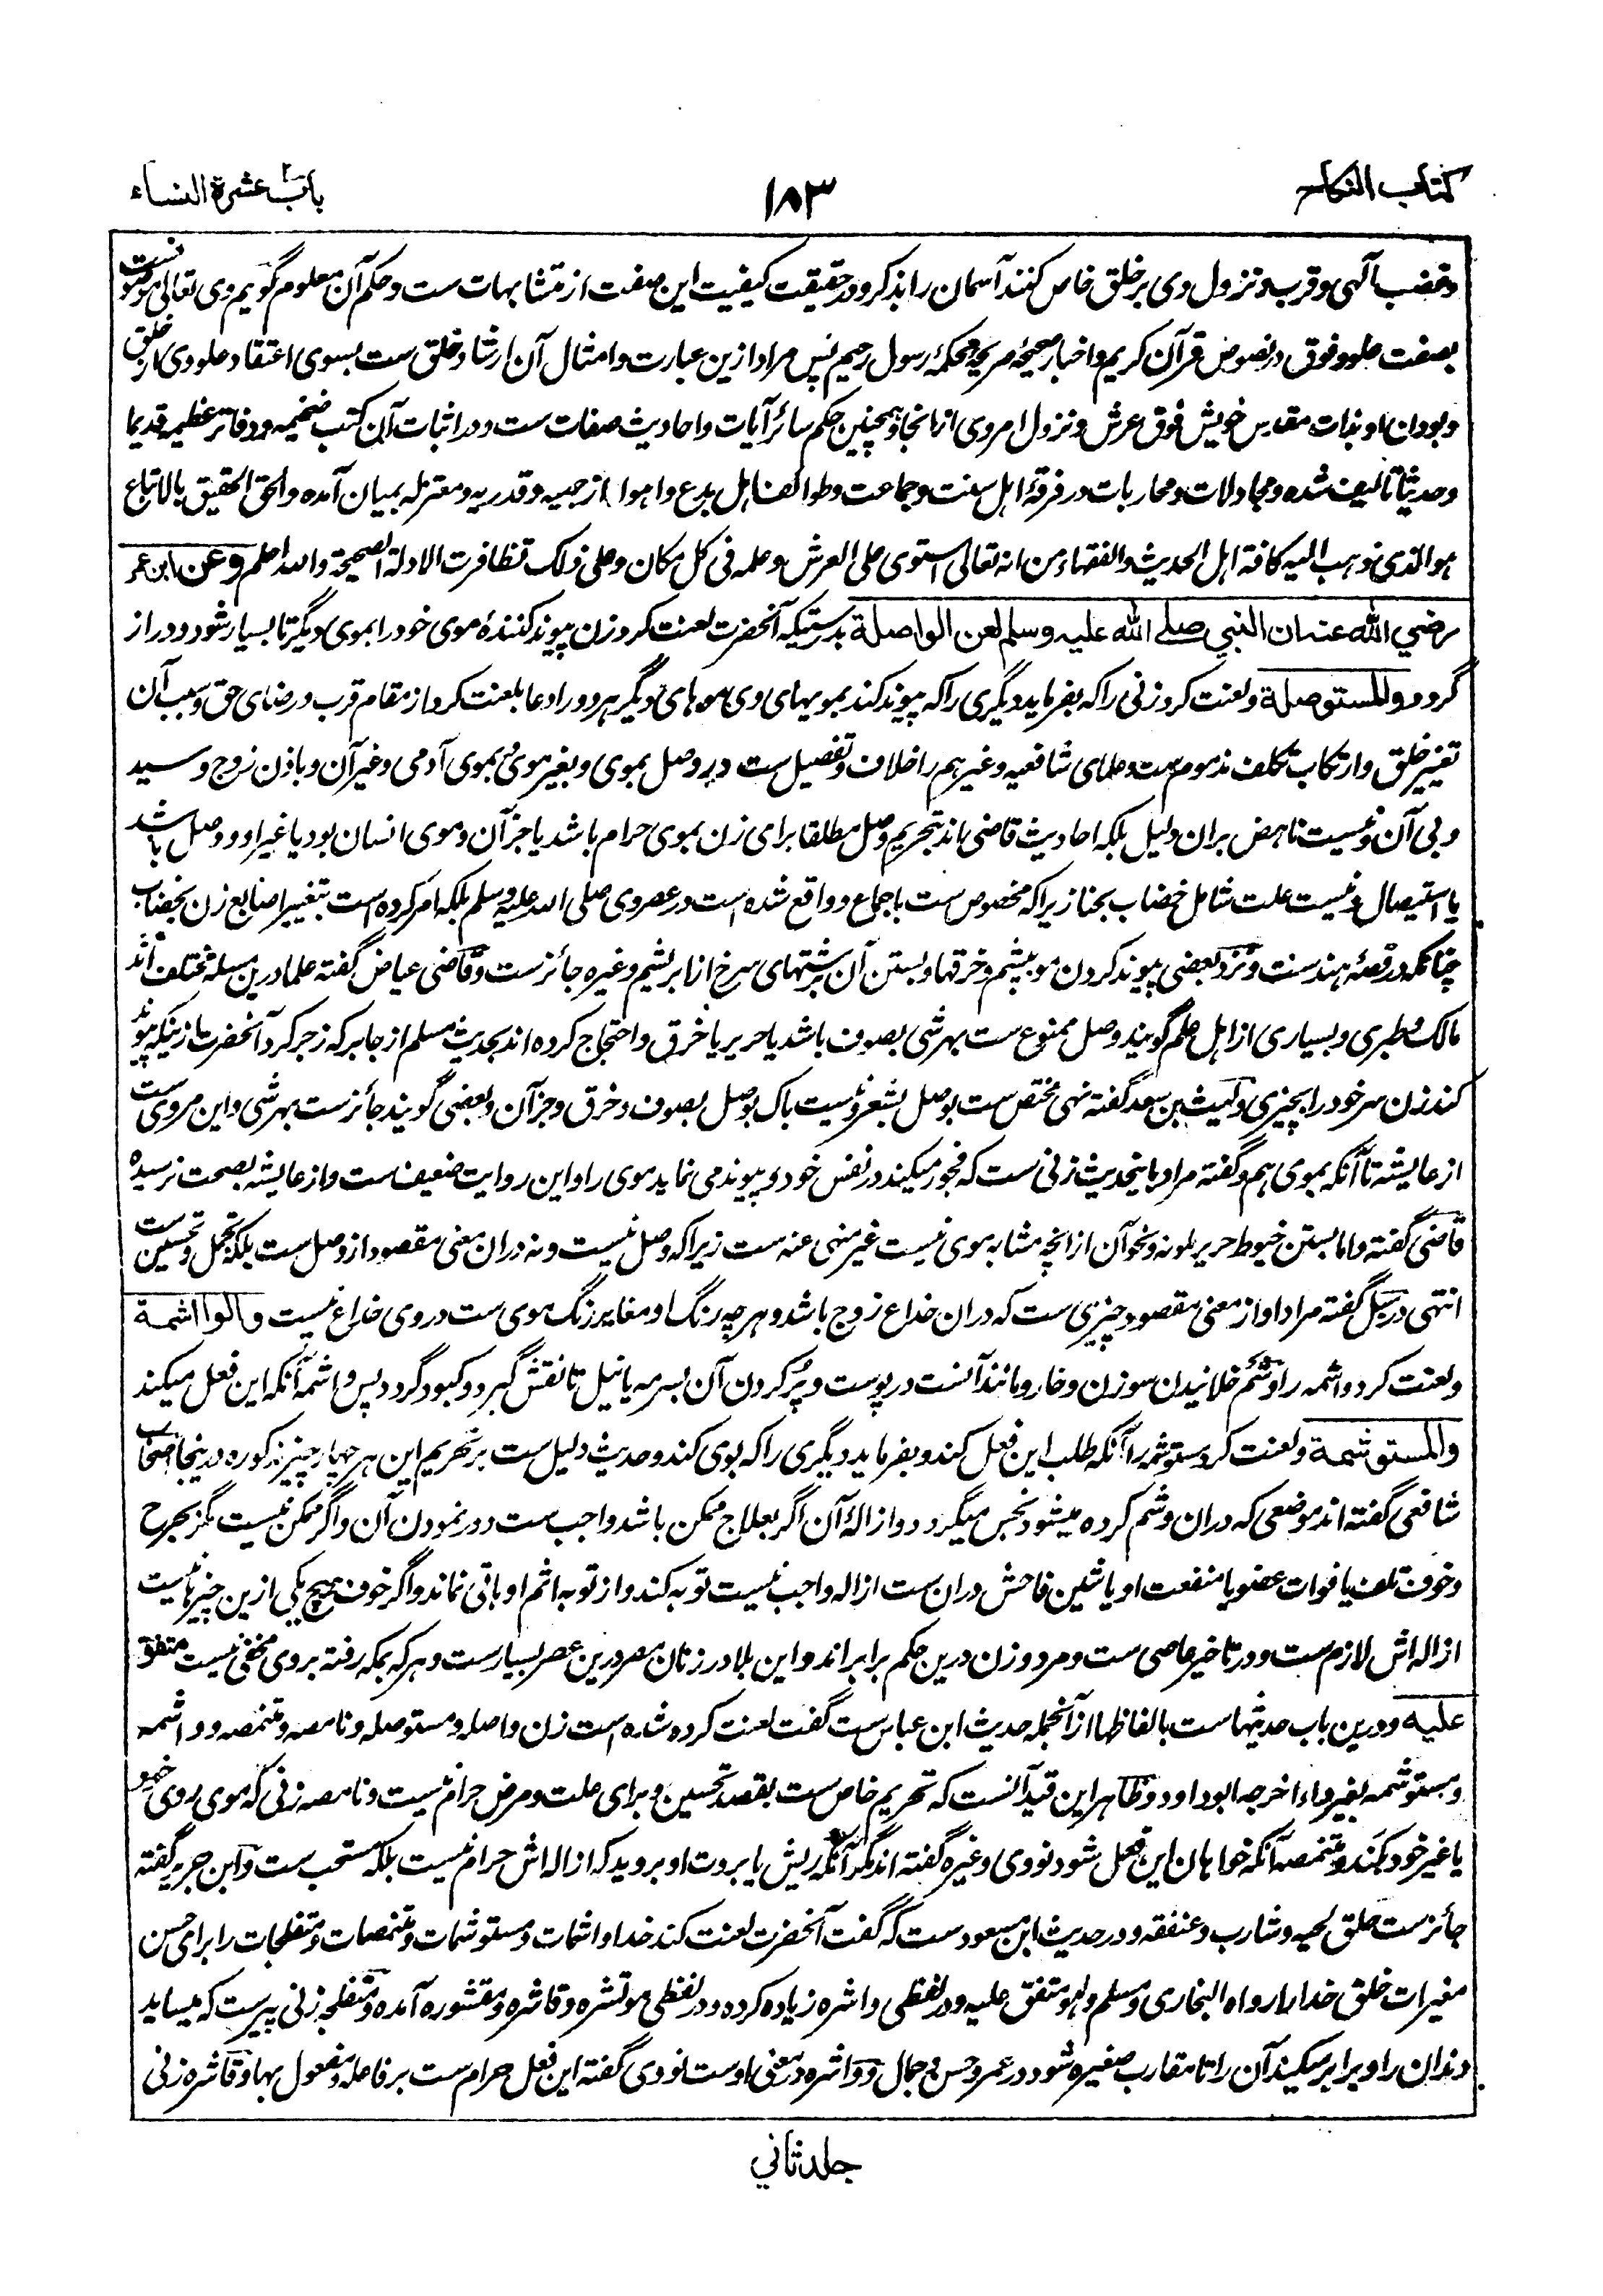 كتاب النكاح
١٨٣
باب عشرة النساء
وغضب الٓهی و قرب و نزول وی بر خلق خاص کنند آسمان را بذکر و در حقیقت کیفیت این صفت از متشابهات ست و حکم آن معلوم گوییم وی تعالی موصوفست
بصفت علو و فوق در نصوص قرآن کریم و اخبار صحیحهٔ صریحهٔ محکمهٔ رسول رحیم پس مراد ازین عبارت و امثال آن ارشاد خلق ست بسوی اعتقاد علو وی از خلق
و بودن او بذات مقدس خویش فوق عرش و نزول امر وی از انجا و همچنین حکم سائر آیات و احادیث صفات ست و در اثبات آن کتب ضخیمه و دفاتر عظیمه قدیما
و حدیثا تالیف شده و مجادلات و محاربات در فرقهٔ اهل سنت و جماعت و طوائف اهل بدع و اهوا از جهمیه و قدریه و معتزله بمیان آمده و الحق الحقیق بالاتباع
هو الذی ذهب الیه کافة اهل الحدیث و الفقهاء من انه تعالی استوی علی العرش و علمه فی کل مکان و علی ذلک تظافرت الادلة الصحیحة والله اعلم وعن ابن عمر
رضي الله عنه ان النبي صلے الله عليه وسلم لعن الواصلة بدرستیکه آنحضرت لعنت کرد زن پیوند کنندهٔ موی خود را بموی دیگر تا بسیار شود و دراز
گردد والمستوصلة و لعنت کرد زنی را که بفرماید دیگری را که پیوند کند بمویهای وی موهای دیگر هر دو را دعا بلعنت کرد از مقام قرب و رضای حق و سبب آن
تغییر خلق و ارتکاب تکلف مذموم ست و علمای شافعیه و غیرهم را خلاف و تفصیل ست در وصل بموی و بغیر موی و بموی آدمی و غیر آن و باذن زوج و سید
و بی آن و نیست ناهض بران دلیل بلکه احادیث قاضی اند بتحریم وصل مطلقا برای زن بموی حرام باشد یا جز آن و موی انسان بود یا غیر او و وصل باشد
یا استیصال و نیست علت شامل خضاب بحنا زیراکه مخصوص ست باجماع و واقع شده است در عصر وی صلی الله علیه وسلم بلکه امر کرده است بتغییر اصابع زن بخضاب
چنانکه در قصهٔ هندست و نزد بعضی پیوند کردن مو بپشم و خرقها و بستن آن برشتهای سرخ از ابریشم و غیره جائزست و قاضی عیاض گفته علما درین مسله مختلف اند
مالک و طبری و بسیاری از اهل علم گویند وصل ممنوع ست بهر شی بصوف باشد یا حریر یا خرق و احتجاج کرده اند بحدیث مسلم از جابر که زجر کرد آنحضرت ازینکه پیوند
کند زن سر خود را بچیزی و لیث بن سعد گفته نهی مختص ست بوصل بشعر و نیست باک بوصل بصوف و خرق و جز آن و بعضی گویند جائزست بهر شی و این مروی ست
از عایشه تا آنکه بموی هم و گفته مراد باینحدیث زنی ست که فجور میکند در نفس خود و پیوند می نماید موی را و این روایت ضعیف ست و از عایشه بصحت نرسیده
قاضی گفته و اما بستن خیوط حریر ملونه و نحو آن از انچه مشابه موی نیست غیر منهی عنه ست زیراکه وصل نیست و نه دران معنی مقصود از وصل ست بلکه تجمل و تحسین ست
انتهی در سبل گفته مراد او از معنی مقصود چیزی ست که دران خداع زوج باشد و هر چه رنگ او مغایر رنگ موی ست در وی خداع نیست والواشمة
و لعنت کرد واشمه را وشم خلانیدن سوزن و خار و مانند آنست در پوست و پر کردن آن بسرمه یا نیل تا نقش گیرد و کبود گردد پس واشمه آنکه این فعل میکند
والمستوشمة و لعنت کرد مستوشمه را آنکه طلب این فعل کند و بفرماید دیگری را که بوی کند و حدیث دلیل ست بر تحریم این هر چهار چیز مذکوره در ینجا اصحاب
شافعی گفته اند موضعی که دران وشم کرده میشود نجس میگردد و ازالهٔ آن اگر بعلاج ممکن باشد واجب ست دور نمودن آن و اگر ممکن نیست مگر بجرح
و خوف تلف یا فوات عضو یا منفعت او یا شین فاحش دران ست ازاله واجب نیست توبه کند و از توبه اثم او باقی نماند و اگر خوف هیچ یکی ازین چیزها نیست
ازاله اش لازم ست و در تاخیر عاصی ست و مرد و زن درین حکم برابراند و این بلا در زنان مصر درین عصر بسیارست و هر که بمکه رفته بر وی مخفی نیست متفق
عليه و درین باب حدیثهاست بالفاظها از آنجمله حدیث ابن عباس ست گفت لعنت کرده شده است زن واصله و مستوصله و نامصه و متنمصه و واشمه
و مستوشمه بغیر داء اخرجه ابو داود و ظاهر این قید آنست که تحریم خاص ست بقصد تحسین و برای علت و مرض حرام نیست و نامصه زنی که موی روی خود
یا غیر خود بکند و متنمصه آنکه خواهان این فعل شود نووی و غیره گفته اند مگر آنکه ریش یا بروت او بروید که ازاله اش حرام نیست بلکه مستحب ست و ابن جریر گفته
جائزست حلق لحیه و شارب و عنفقه و در حدیث ابن مسعود ست که گفت آنحضرت لعنت کند خدا واشمات و مستوشمات و متنمصات و متفلجات را برای حسن
مغیرات خلق خدا را رواه البخاری و مسلم و هو متفق علیه و در لفظی واشره زیاده کرده و در لفظی موتشره و قاشره و مقشوره آمده و متفلجه زنی پیرست که میساید
دندان را و برابر میکند آن را تا مقارب صغیره شود در عمر و حسن و جمال و واشره در معنی اوست نووی گفته این فعل حرام ست بر فاعله و مفعول بها و قاشره زنی
جلد ثاني